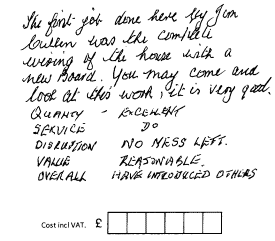 The first job done here by Jim
Cullen was the complete
wiring of the house with a
new Board. You may come and
look at this work, it is very good.
QUALITY - EXCELLENT
SERVICE DO
DISRUPTION NO MESS LEFT.
VALUE REASONABLE.
OVERALL HAVE INTRODUCED OTHERS
Cost incl VAT. £